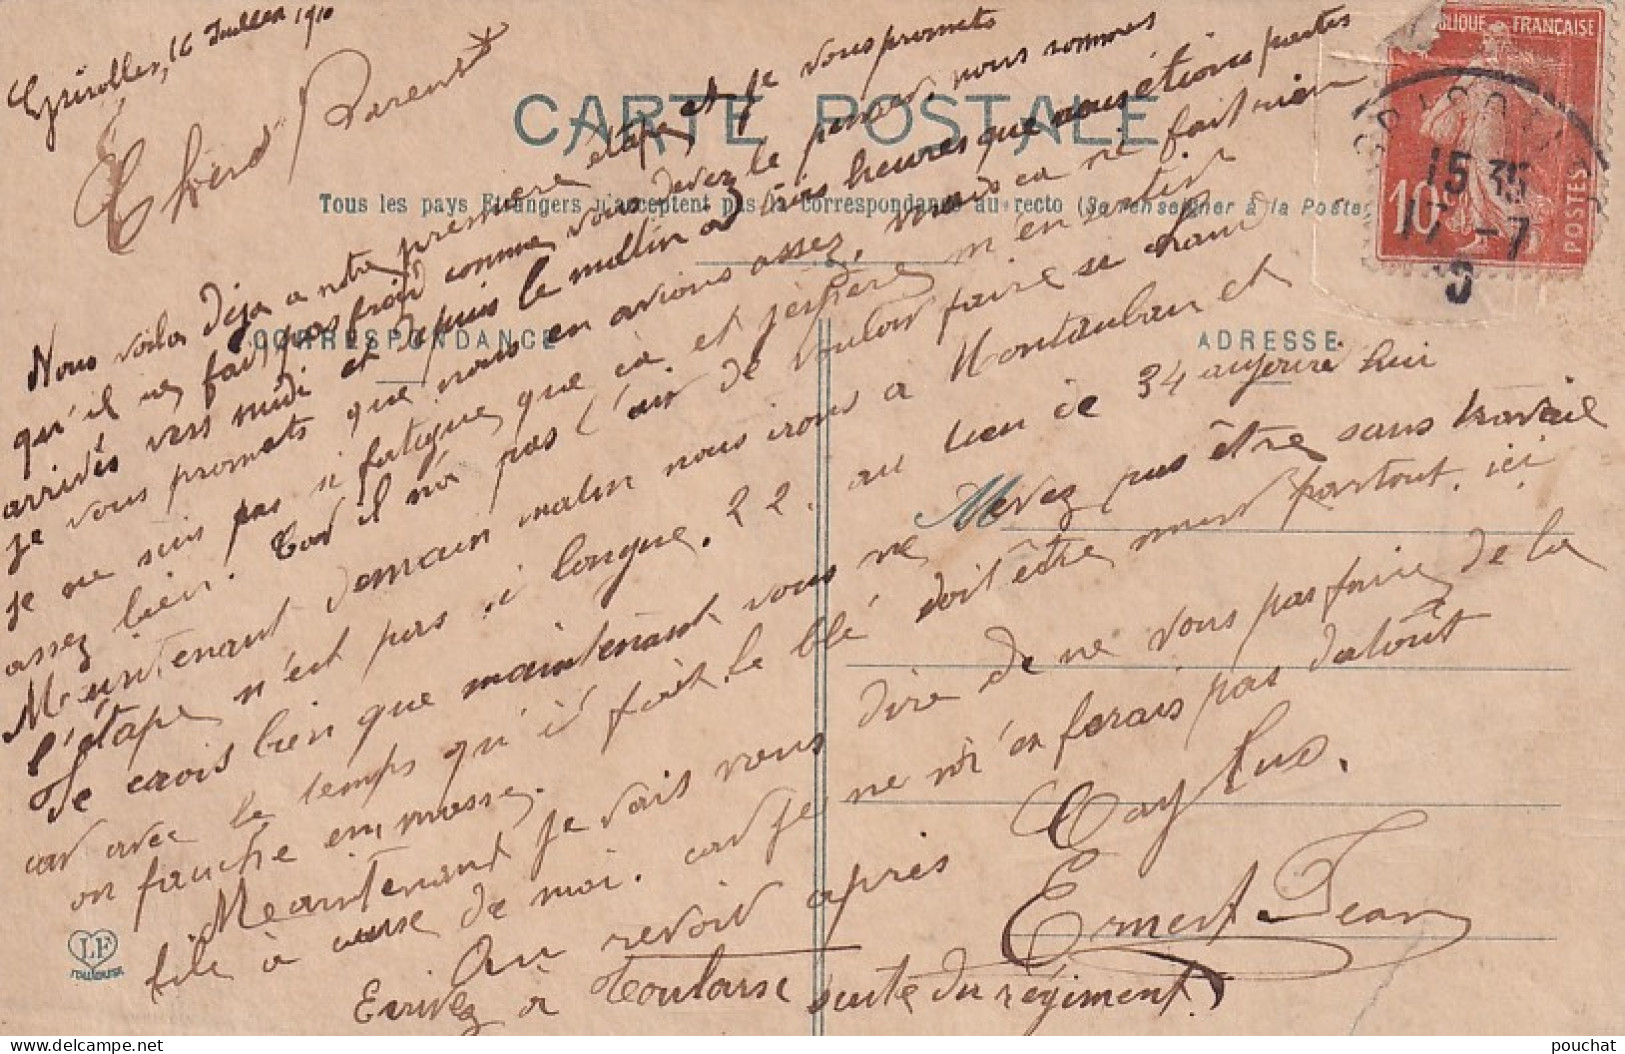 Grisolles, 16 Juillet 1910
Chers Parents
CARTE POSTALE
Tous les pays Etrangers n'acceptent pas la correspondance au recto (Se renseigner à la Poste)
CORRESPONDANCE
ADRESSE
RÉPUBLIQUE FRANÇAISE
10 POSTES
15 35
17 -7
Nous voila déja a notre première étape, et je vous promets
qu'il ne fait pas froid comme vous devez le penser, nous sommes
arrivés vers midi et depuis le mattin à trois heures que nous étions partis
je vous promets que nous en avions assez, mais ca ne fait rien
je ne suis pas si fatigué que ca et j'espère m'en sortir
assez bien. Car il n'a pas l'air de vouloir faire si chaud
Maintenant demain matin nous irons a Montauban et
l'étape n'est pas si longue. 22. au lieu de 34 aujourd'hui
Je crois bien que maintenant vous ne devez pas être sans travail
car avec le temps qu'il fait le blé doit être mur partout, ici
on fauche en masse.
Maintenant je vais vous dire de ne vous pas faire de la
bile à cause de moi. car je ne m'en ferais pas du tout
Au revoir après Caylus.
Ernest Jean
Ecrivez à Toulouse suite du régiment)
LF
TOULOUSE
pouchat